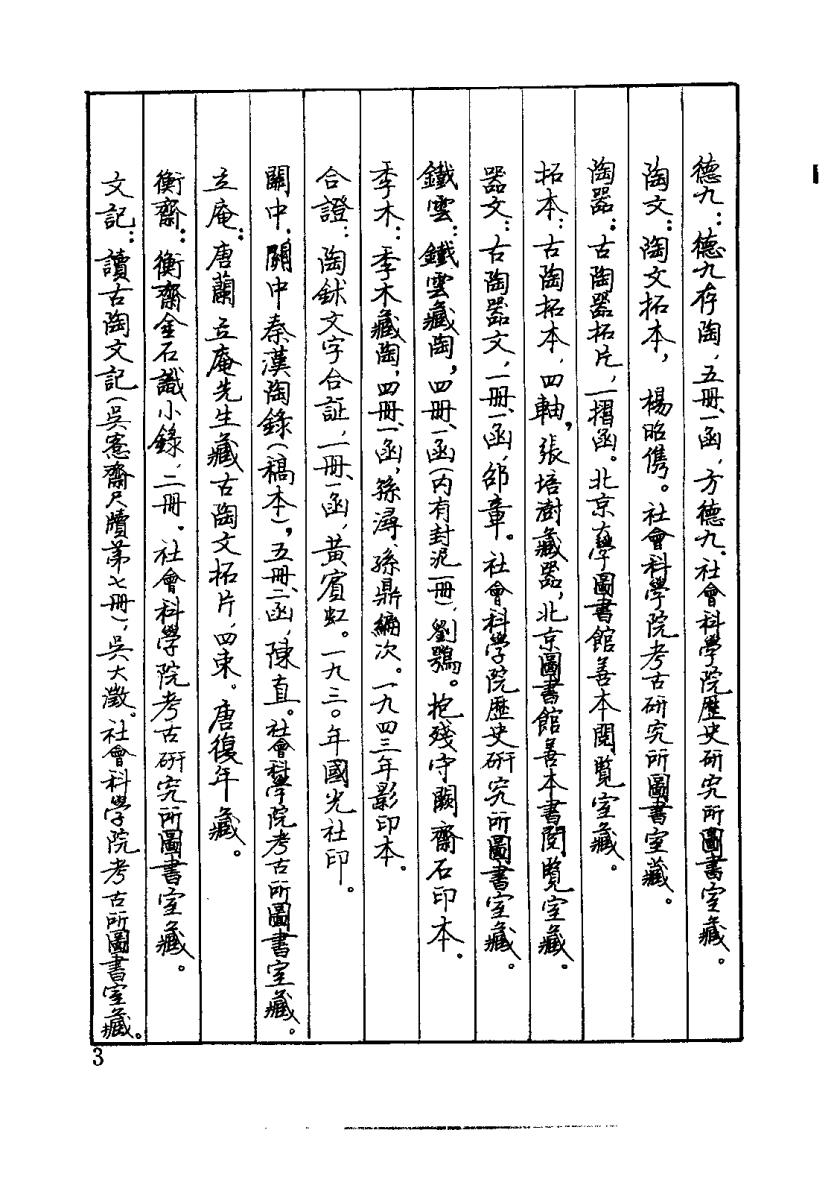 德九：德九存陶，五冊一函，方德九。社會科學院歷史研究所圖書室藏。
陶文：陶文拓本，楊昭儁。社會科學院考古研究所圖書室藏。
陶器：古陶器拓片，一摺函。北京大學圖書館善本閱覽室藏。
拓本：古陶拓本，四軸，張培澍藏器，北京圖書館善本書閱覽室藏。
器文：古陶器文，一冊一函，邵章。社會科學院歷史研究所圖書室藏。
鐵雲：鐵雲藏陶，四冊一函（内有封泥一冊），劉鶚。抱残守闕齋石印本。
季木：季木藏陶，四冊一函，孫潯、孫鼎編次。一九四三年影印本。
合證：陶鉥文字合証，一冊一函，黃賓虹。一九三〇年國光社印。
關中：關中秦漢陶錄（稿本），五冊二函，陳直。社會科學院考古所圖書室藏。
立庵：唐蘭立庵先生藏古陶文拓片，四束。唐復年藏。
衡齋：衡齋金石識小錄，二冊。社會科學院考古研究所圖書室藏。
文記：讀古陶文記（吳愙齋尺牘第七冊），吳大澂。社會科學院考古所圖書室藏。
3